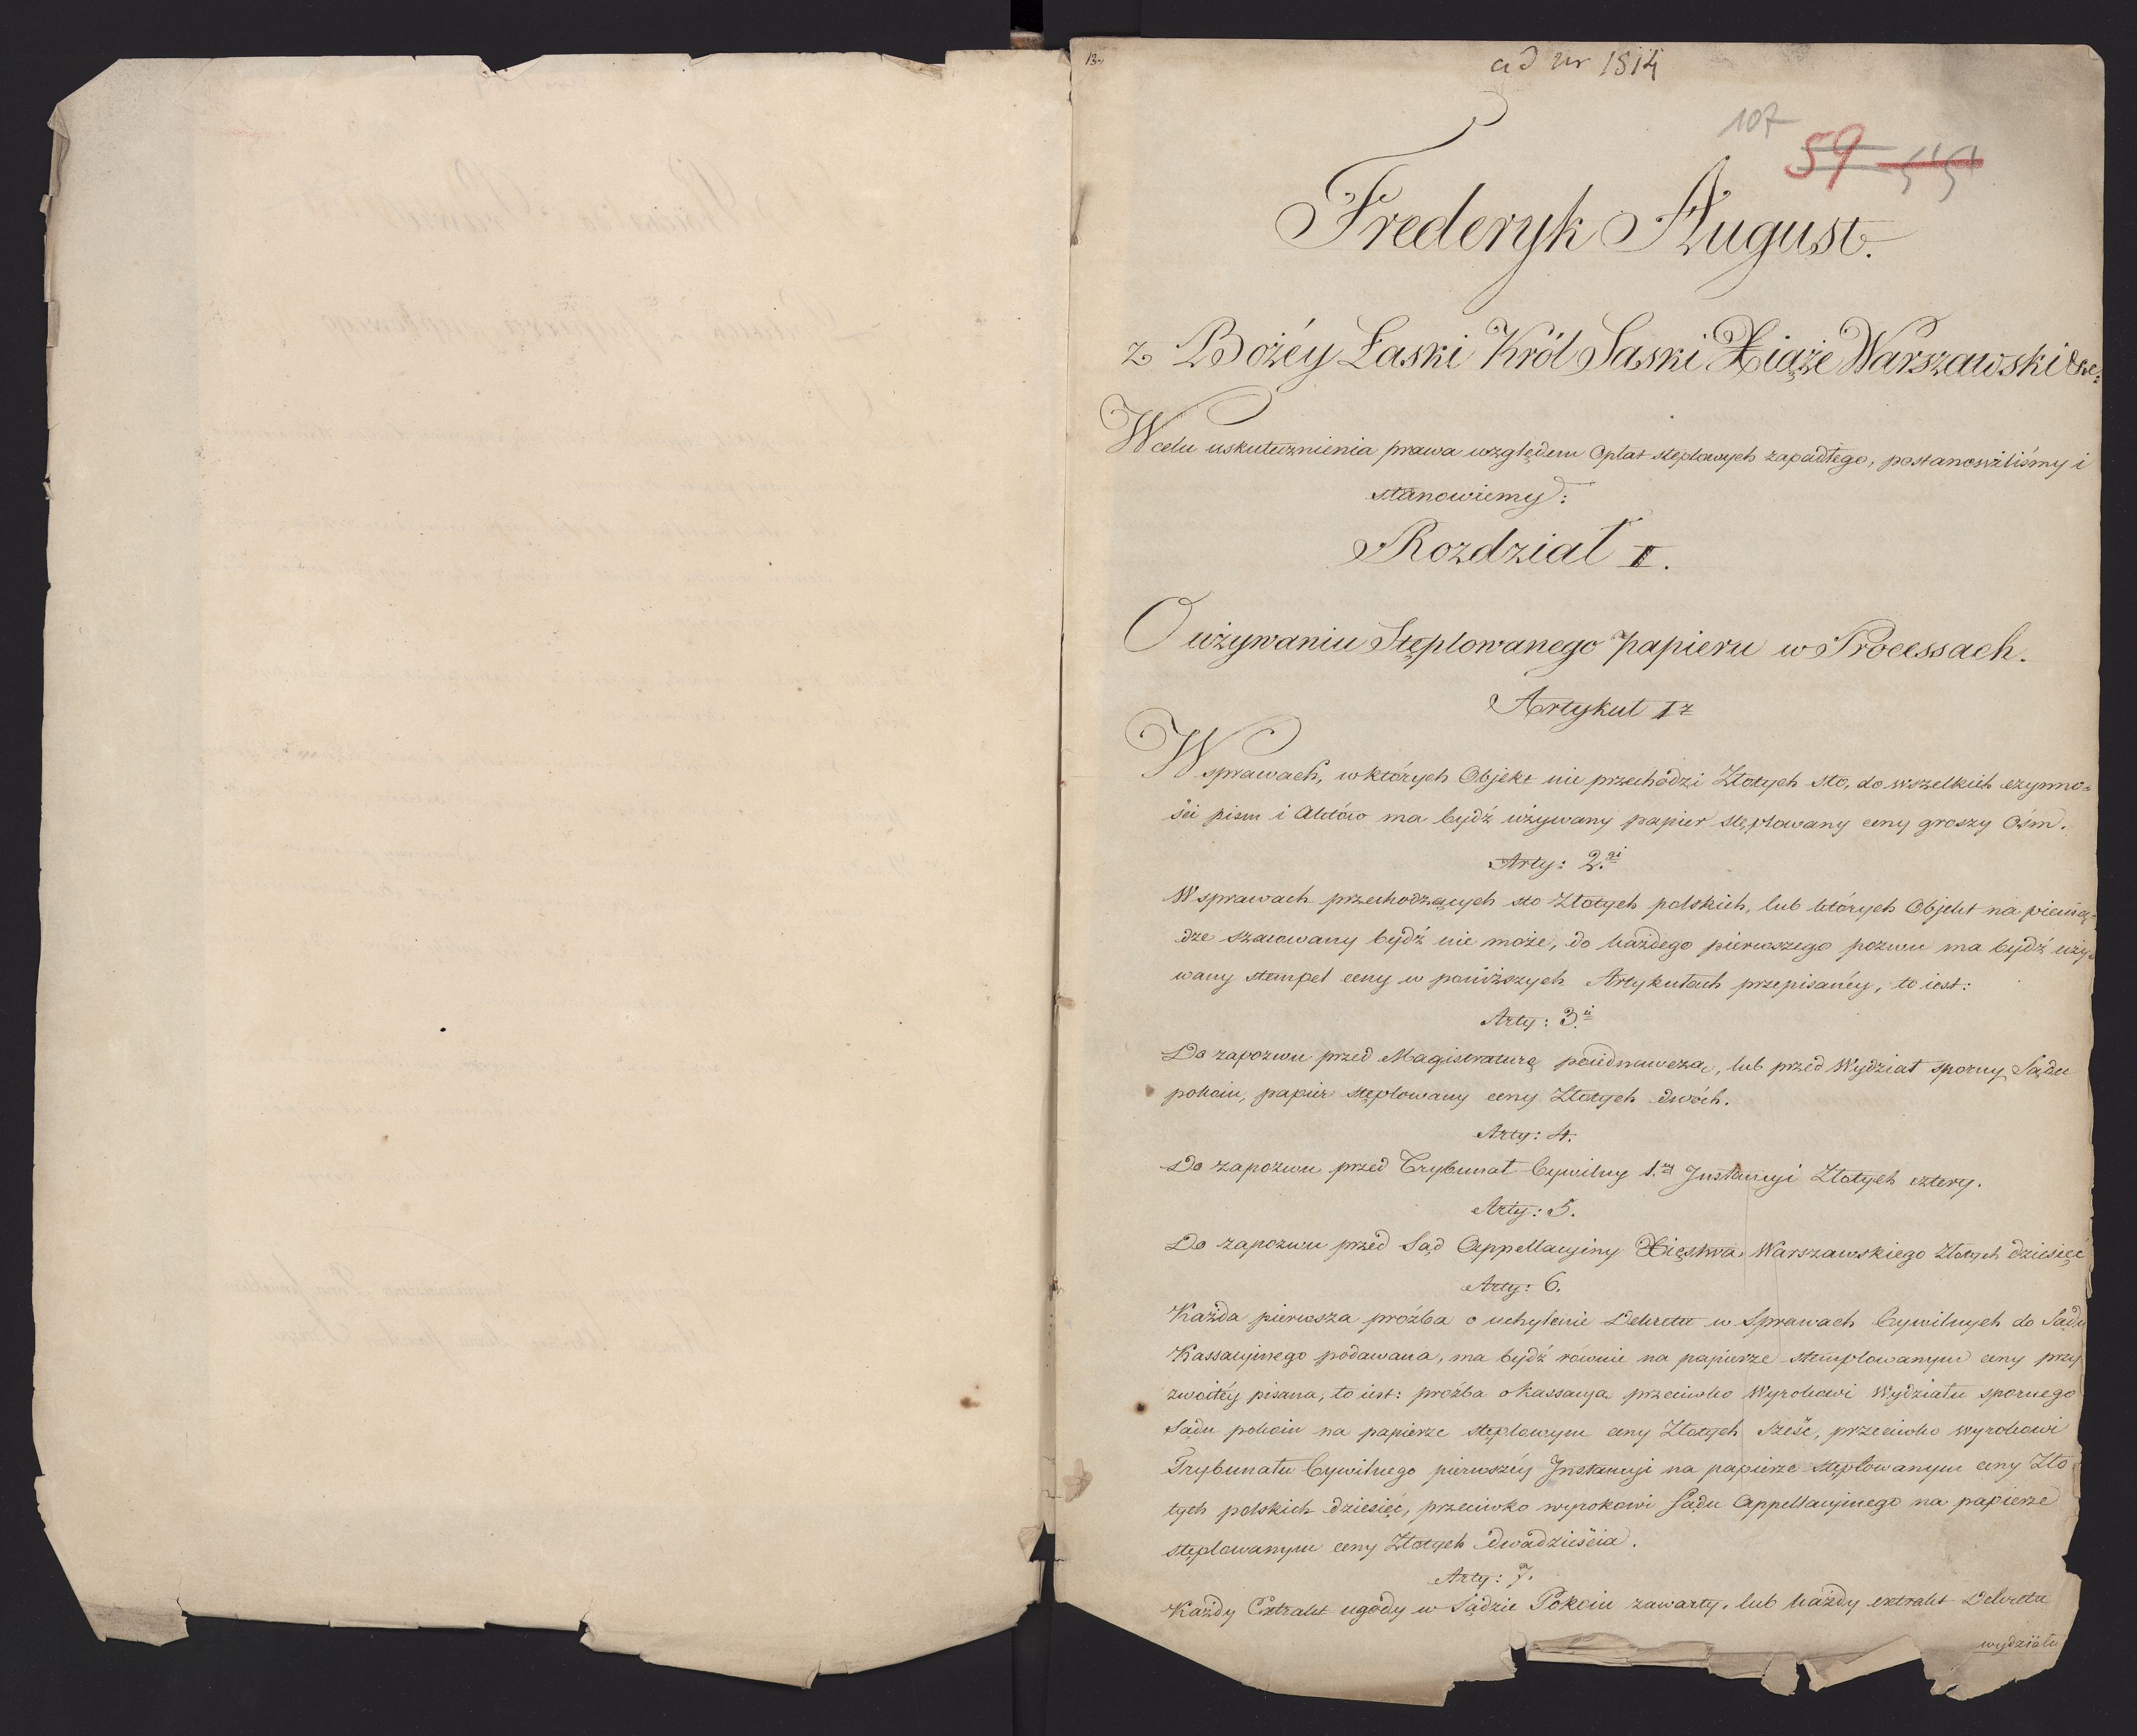 13.
ad nr 1814
107
59
Frederyk August.
z Bożéy Łaski Król Saski Xiąże Warszawski &c:
W celu uskutecznienia prawa względem Opłat stęplowych zapadłego, postanowiliśmy i
stanowiemy:
Rozdział I.
O używaniu Stęplowanego papieru w Processach.
Artykuł 1z
W sprawach, w których Objekt nie przechodzi Złotych sto, do wszelkich czynno=
ści pism i Aktów ma bydź używany papier stęplowany ceny groszy Ośm.
Arty: 2.gi
W sprawach przechodzących sto Złotych polskich, lub których Objekt na pienią=
dze szacowany bydź nie może, do każdego pierwszego pozwu ma bydź uży=
wany stempel ceny w poniższych Artykułach przepisanéy, to iest:
Arty: 3.ci
Do zapozwu przed Magistraturę poiednawczą, lub przed Wydział sporny Sądu
pokoiu, papier stęplowany ceny Złotych dwóch.
Arty: 4.
Do zapozwu przed Trybunał Cywilny 1.éy Instancyi Złotych cztery.
Arty: 5.
Do zapozwu przed Sąd Appellacyiny Xięstwa Warszawskiego Złotych dziesięć
Arty: 6.
Każda pierwsza proźba o uchylenie Dekretu w Sprawach Cywilnych do Sądu
Kassacyinego podawana, ma bydź równie na papierze stemplowanym ceny przy
zwoitéy pisana, to iest: proźba o kassacyą przeciwko Wyrokowi Wydziału spornego
Sądu pokoiu na papierze stęplowym ceny Złotych sześć, przeciwko wyrokowi
Trybunału Cywilnego pierwszéy Instancyi na papierze stęplowanym ceny Zło
tych polskich dziesięć, przeciwko wyrokowi Sądu Appellacyinego na papierze
stęplowanym ceny Złotych dwadzieścia.
Arty: 7.
Każdy Extrakt ugody w Sądzie Pokoiu zawarty, lub każdy extrakt Dekretu
wydziału